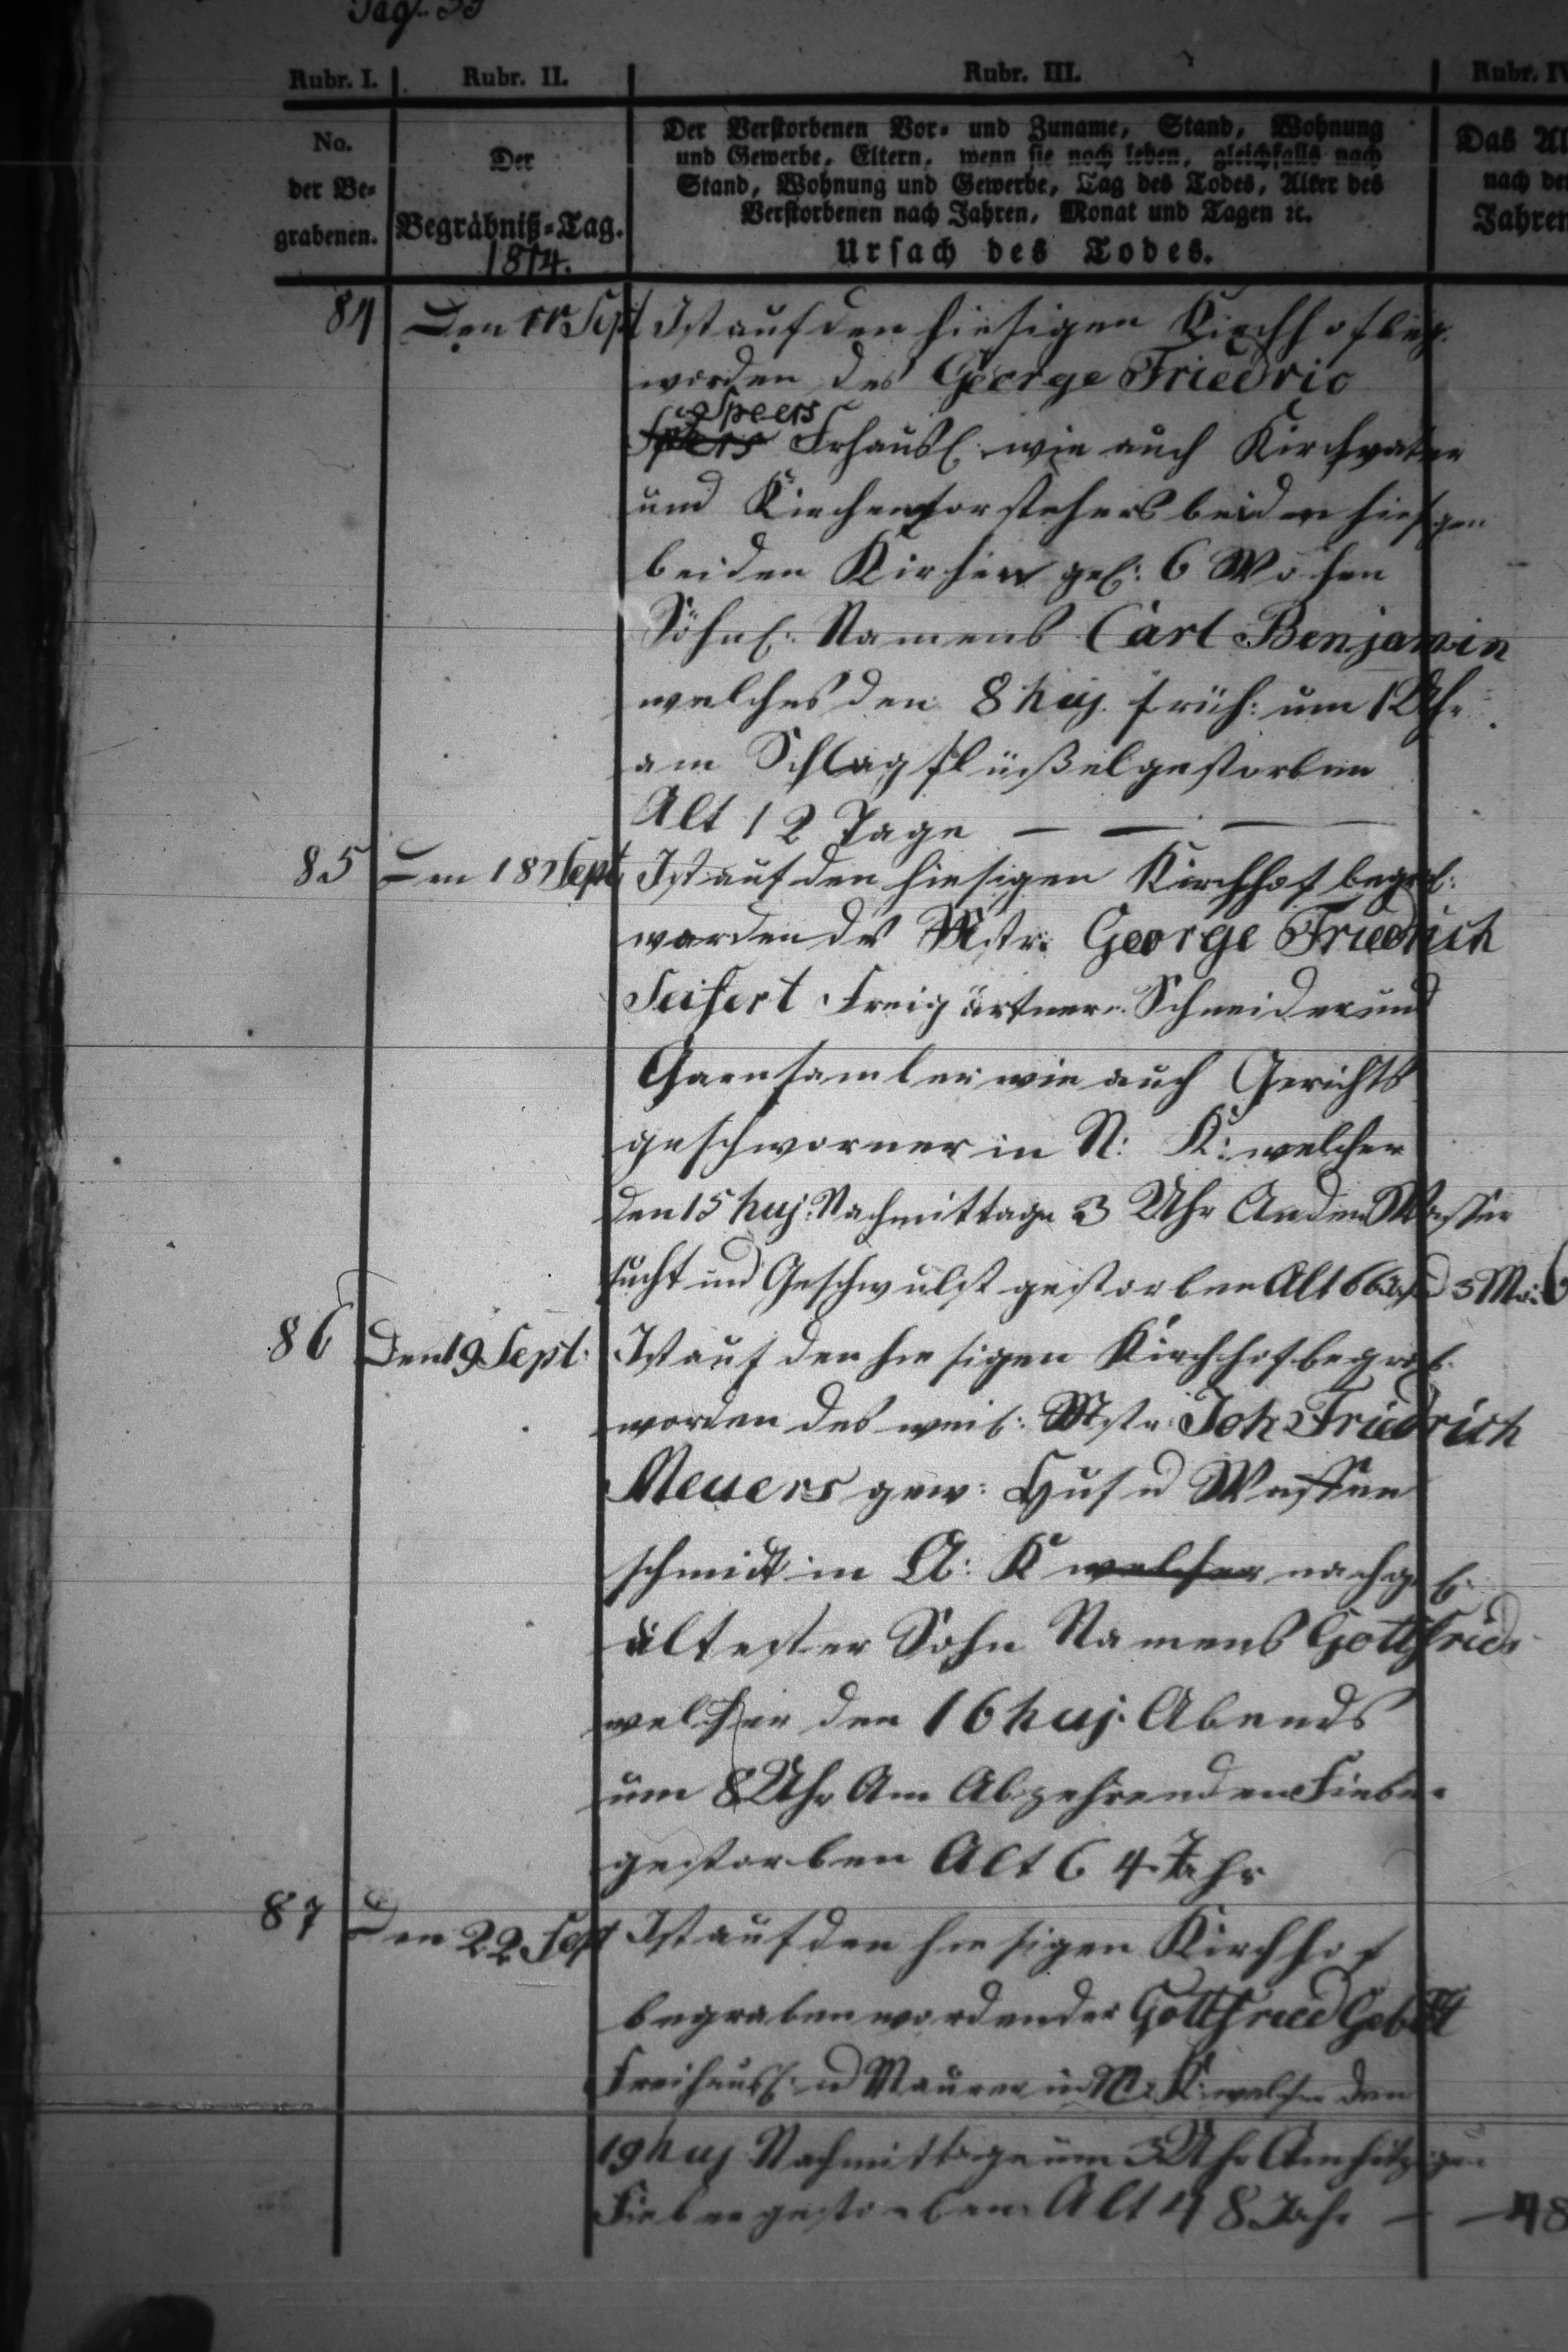 Pag. 33
Rubr. I. Rubr. II. Rubr. III. Rubr. IV
No.
der Be-
grabenen.
Der
Begräbniß-Tag.
1814.
Der Verstorbenen Vor- und Zuname, Stand, Wohnung
und Gewerbe, Eltern, wenn sie noch leben, gleichfalls nach
Stand, Wohnung und Gewerbe, Tag des Todes, Alter des
Verstorbenen nach Jahren, Monat und Tagen ꝛc.
Ursach des Todes.
Das Al
nach de
Jahren
84 Den 11 Sept Ist auf den hiesigen Kirchhof beg.
worden des George Friedric
Speers
Frhausl. wie auch Kirchvater
und Kirchenvorstehers bei den hiesigen
beiden Kirchen gel: 6 Wochen
Söhnl. Namens Carl Benjamin
welches den 8 huj. früh: um 1 Uhr
am Schlagflüßel gestorben
Alt 12 Tage — — —
85 Den 18 Sept Ist auf den hiesigen Kirchhof begra:
worden der Mstr: George Friedrich
Seifert Freigärtner Schneider und
Garnsamler wie auch Gerichts
geschworner in N: K: welcher
den 15 huj: Nachmittage 3 Uhr An der Wasser
sucht und Geschwulst gestorben Alt 66 3 Mo:
86 Den 19 Sept: Ist auf den hiesigen Kirchhof begrab.
worden des weil: Mstr: Joh Friedrich
Meuers gew: Huf u Waffen
schmidt in A: K welcher nachgel:
ältester Sohn Namens Gottfried
welcher den 16 huj. Abends
um 8 Uhr Am Abzehrenden Fieber
gestorben Alt 64 Jahr
87 Den 22 Sept Ist auf den hiesigen Kirchhof
begraben worden der Gottfried
Freihausl: u Maurer in K: welcher den
19 huj Nachmittage um 3 Uhr Am hitzigen
Fieber gestorben Alt 48 Jahr — — 48